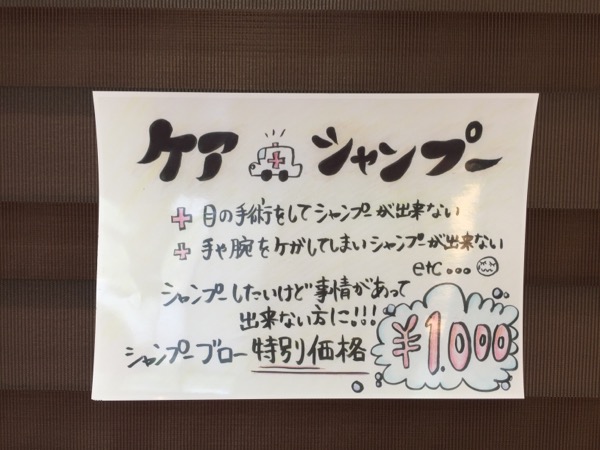 ケア シャンプー
目の手術をしてシャンプーが出来ない
手や腕をケガしてしまいシャンプーが出来ない
etc...
シャンプーしたいけど事情があって
出来ない方に!!!
シャンプーブロー 特別価格
¥1.000